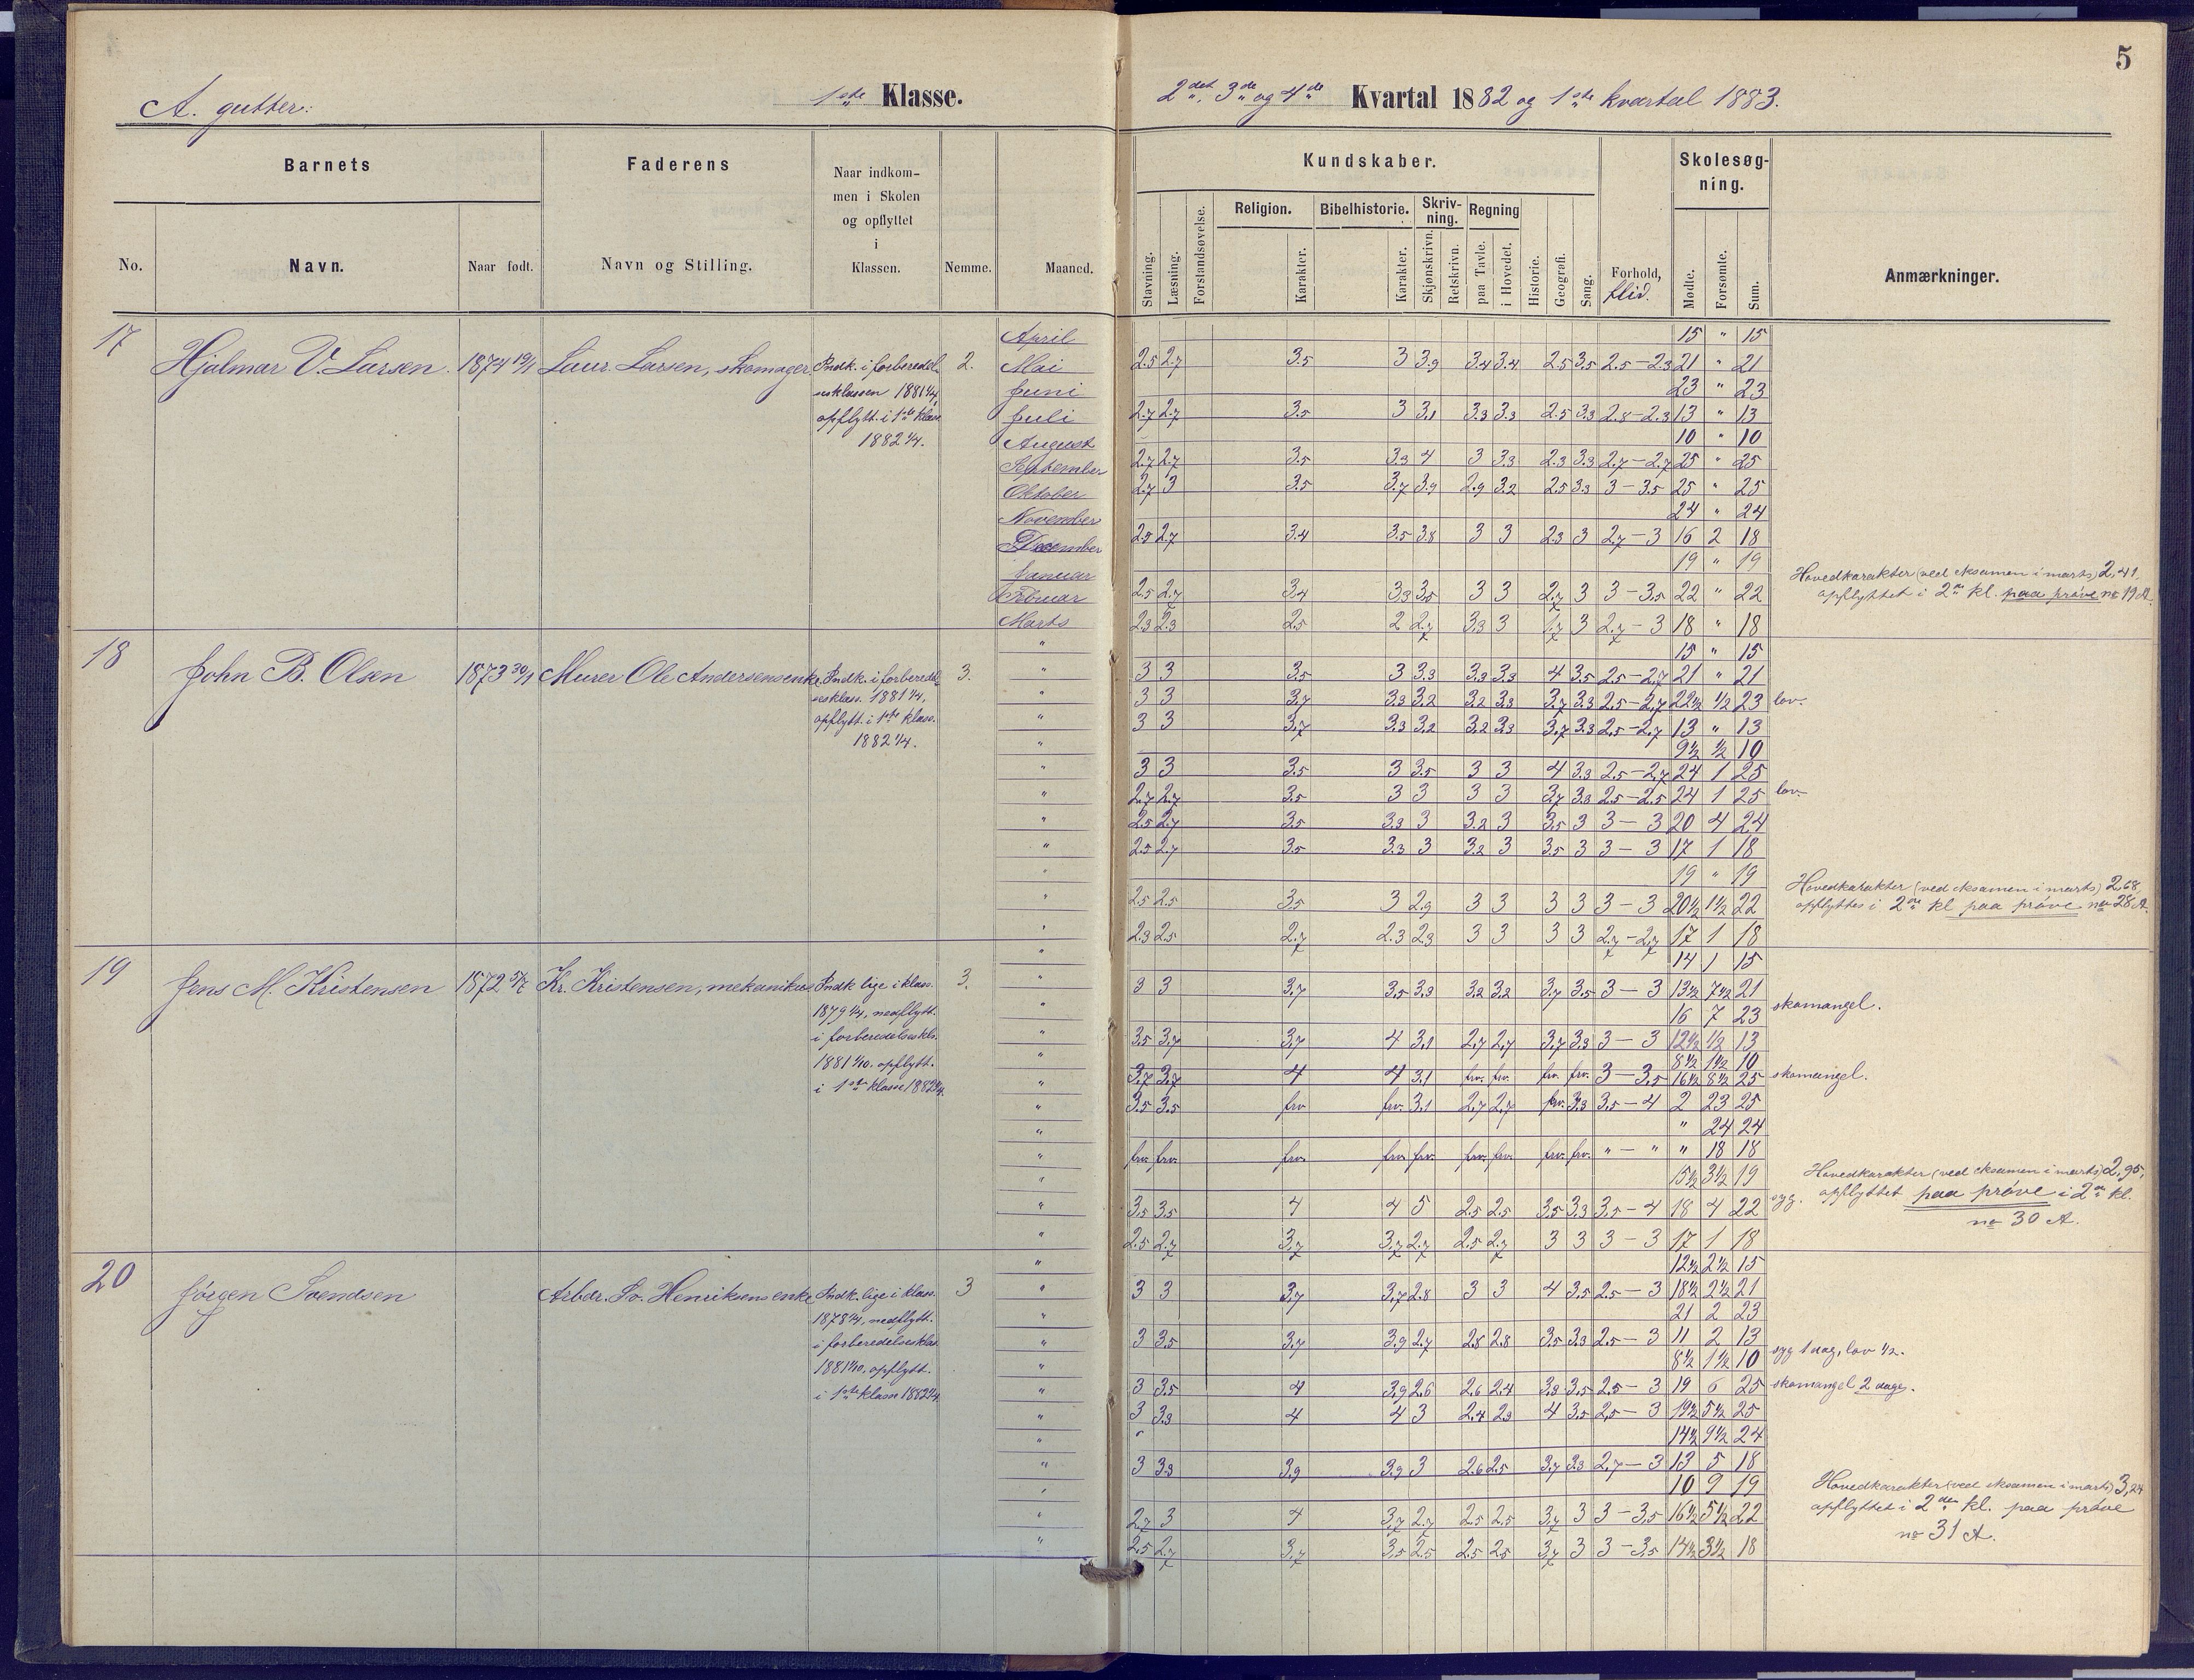 5
A. gutter.
1ste Klasse.
2det, 3de og 4de Kvartal 1882 og 1ste kvartal 1883.
Barnets
Faderens
Naar indkom-
men i Skolen
og opflyttet
i
Klassen.
Kundskaber.
Skolesøg-
ning.
Religion. Bibelhistorie. Skriv-
ning. Regning
No. Navn. Naar født. Navn og Stilling. Nemme. Maaned. Stavning. Læsning. Forstandsøvelse. Karakter. Karakter. Skjønskrivn. Retskrivn. paa Tavle. i Hovedet. Historie. Geografi. Sang. Forhold, flid. Mødte. Forsømte. Sum. Anmærkninger.
17 Hjalmar V. Larsen. 1874 19/1 Laur. Larsen, skomager. Indk. i forberedel-
sesklassen 1881 1/4,
opflytt. i 1ste klasse
1882 1/4.
2.
April 15 " 15
Mai 2.5 2.7 3.5 3 3.9 3.4 3.4 2.5 3.5 2.5-2.3 21 " 21
Juni 23 " 23
Juli 2.7 2.7 3.5 3 3.1 3.3 3.3 2.5 3.3 2.8-2.3 13 " 13
August 10 " 10
September 2.7 2.7 3.5 3.3 4 3 3.3 2.3 3.3 2.7-2.7 25 " 25
Oktober 2.7 3 3.5 3.7 3.9 2.9 3.2 2.5 3.3 3-3.5 25 " 25
November 24 " 24
December 2.5 2.7 3.4 3.5 3.8 3 3 2.3 3 2.7-3 16 2 18
Januar 19 " 19
Februar 2.5 2.7 3.4 3.3 3.5 3 3 2.7 3 3-3.5 22 " 22
Marts 2.3 2.3 2.5 2 2.7 3.3 3 1.7 3 2.7-3 18 " 18
Hovedkarakter (ved eksamen i marts) 2,41,
opflyttet i 2den kl. paa prøve no 19 A.
18 John B. Olsen 1873 30/1 Murer Ole Andersens enke Indk. i forberedel-
sesklass. 1881 1/4,
opflytt. i 1ste klasse.
1882 1/4.
3.
" 15 " 15
" 3 3 3.5 3 3.3 3.3 3.3 4 3.5 2.5-2.7 21 " 21
" 3 3 3.7 3.3 3.2 3.2 3.3 3.7 3.3 2.5-2.7 22 1/2 1/2 23 lov.
" 3 3 3.7 3.3 3.2 3.2 3.3 3.7 3.3 2.5-2.7 13 " 13
" 9 1/2 1/2 10
" 3 3 3.5 3 3.5 3 3 4 3.3 2.5-2.7 24 1 25
" 2.7 2.7 3.5 3 3 3 3 3.7 3.3 2.5-2.5 24 1 25 lov.
" 2.5 2.7 3.5 3.3 3 3.2 3 3.5 3 3-3 20 4 24
" 2.5 2.7 3.5 3.3 3 3.2 3 3.5 3 3-3 17 1 18
" 19 " 19
" 2.5 2.5 3.5 3 2.9 3 3 3 3 3-3 20 1/2 1 1/2 22
" 2.3 2.5 2.7 2.3 2.3 3 3 3 3 2.7-2.7 17 1 18
Hovedkarakter (ved eksamen i marts) 2,68,
opflyttes i 2den kl paa prøve no 28 A.
19 Jens M. Kristensen 1872 5/7 Kr. Kristensen, mekanikus Indk lige i klass.
1879 1/4, nedflytt.
i forberedelseskls.
1881 1/10. opflytt.
i 1ste klasse 1882 1/4.
3.
" 14 1 15
" 3 3 3.7 3.5 3.3 3.2 3.2 3.7 3.5 3-3 13 1/2 7 1/2 21
" 16 7 23 skomangel.
" 3.5 3.7 3.7 4 3.1 2.7 2.7 3.7 3.3 3-3 12 1/2 1/2 13
" 8 1/2 1 1/2 10
" 3.7 3.7 4 4 3.1 frv. frv. frv. frv. 3-3.5 16 1/2 8 1/2 25 skomangel.
" 3.5 3.5 frv frv. 3.1 2.7 2.7 frv. 3.3 3.5-4 2 23 25
" " 24 24
" frv. frv. frv. frv. frv. frv. frv. frv. frv. "-" " 18 18
" 15 1/2 3 1/2 19
" 3.5 3.5 4 4 5 2.5 2.5 3.5 3.3 3.5-4 18 4 22 syg.
" 2.5 2.7 3.7 3.7 2.7 2.5 2.7 3 3 3-3 17 1 18
Hovedkarakter (ved eksamen i marts) 2,95,
opflyttet paa prøve i 2den kl.
no 30 A.
20 Jørgen Svendsen Arbdr. Sv. Henriksens enke Indk. lige i klass.
1878 1/4, nedflytt.
i forberedelsesklas
1881 1/10, opflytt.
i 1ste klasse 1882 1/4.
3
" 12 1/2 2 1/2 15
" 3 3 3.7 3.7 2.8 3 3 4 3.5 2.5-3 18 1/2 2 1/2 21
21 2 23
" 3 3.5 3.7 3.9 2.7 2.8 2.8 3.5 3.3 2.5-3 11 2 13
" 8 1/2 1 1/2 10 syg 1 dag, lov 1/2.
" 3 3.5 4 3.9 2.6 2.6 2.4 3.3 3.5 2.5-3 19 6 25 skomangel 2 dage.
" 3 3.3 4 4 3 2.4 2.3 4 3.5 2.5-3 19 1/2 5 1/2 25
" 14 1/2 9 1/2 24
" 3 3.3 3.9 3.9 3 2.6 2.5 3.7 3.3 2.7-3 13 5 18
" 10 9 19
" 2.7 3 4 3.7 2.7 2.5 2.5 3.7 3 3-3.5 16 1/2 5 1/2 22
" 2.5 2.7 3.7 3.5 2.5 2.5 2.5 3.7 3 3-3.5 14 1/2 3 1/2 18
Hovedkarakter (ved eksamen i marts) 3,24
opflyttet i 2den kl. paa prøve
no 31 A.